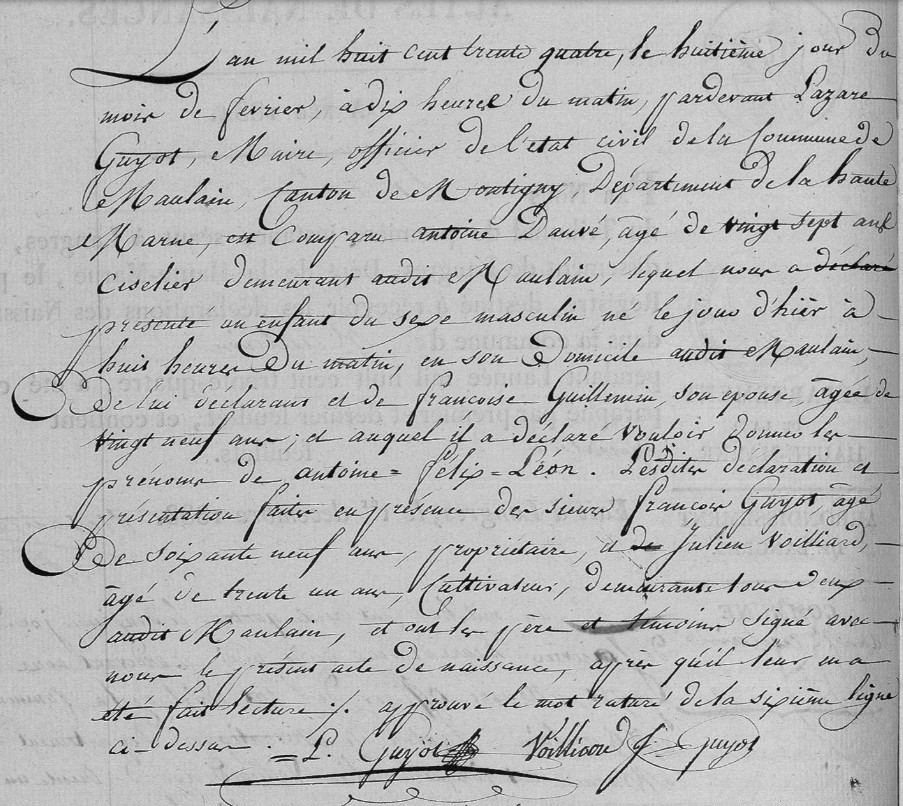 L'an mil huit cent trente quatre, le huitième jour du
mois de fevrier, à dix heures du matin, pardevant Lazare
Guyot, Maire, officier de l'état civil de la Commune de
Maulain, Canton de Montigny Département de la haute
Marne, est Comparu antoine Dauvé, âgé de vingt sept ans
Ciselier demeurant audit Maulain, lequel nous a déclaré
présenté un enfant du sexe masculin né le jour d'hièr à
huit heures du matin, en son Domicile audit Maulain,
De lui déclarant et de francoise Guillemin, son épouse âgée de
vingt neuf ans; et auquel il a déclaré vouloir donner les
prénoms de antoine = félix = Léon. Lesdites déclaration et
présentation faites en présence des sieurs francois Guyot, âgé
De soixante neuf ans, propriétaire, et de Julien Voilliard,
âgé de trente un ans, Cultivateur, demeurants tous deux
audit Maulain, et ont les père et témoins signé avec
nous le présent acte de naissance, après qu'il leur en a
été fait lecture ./. approuve le mot raturé de la sixième ligne
ci-dessus. = L. Guyot Voilliard f. Guyot